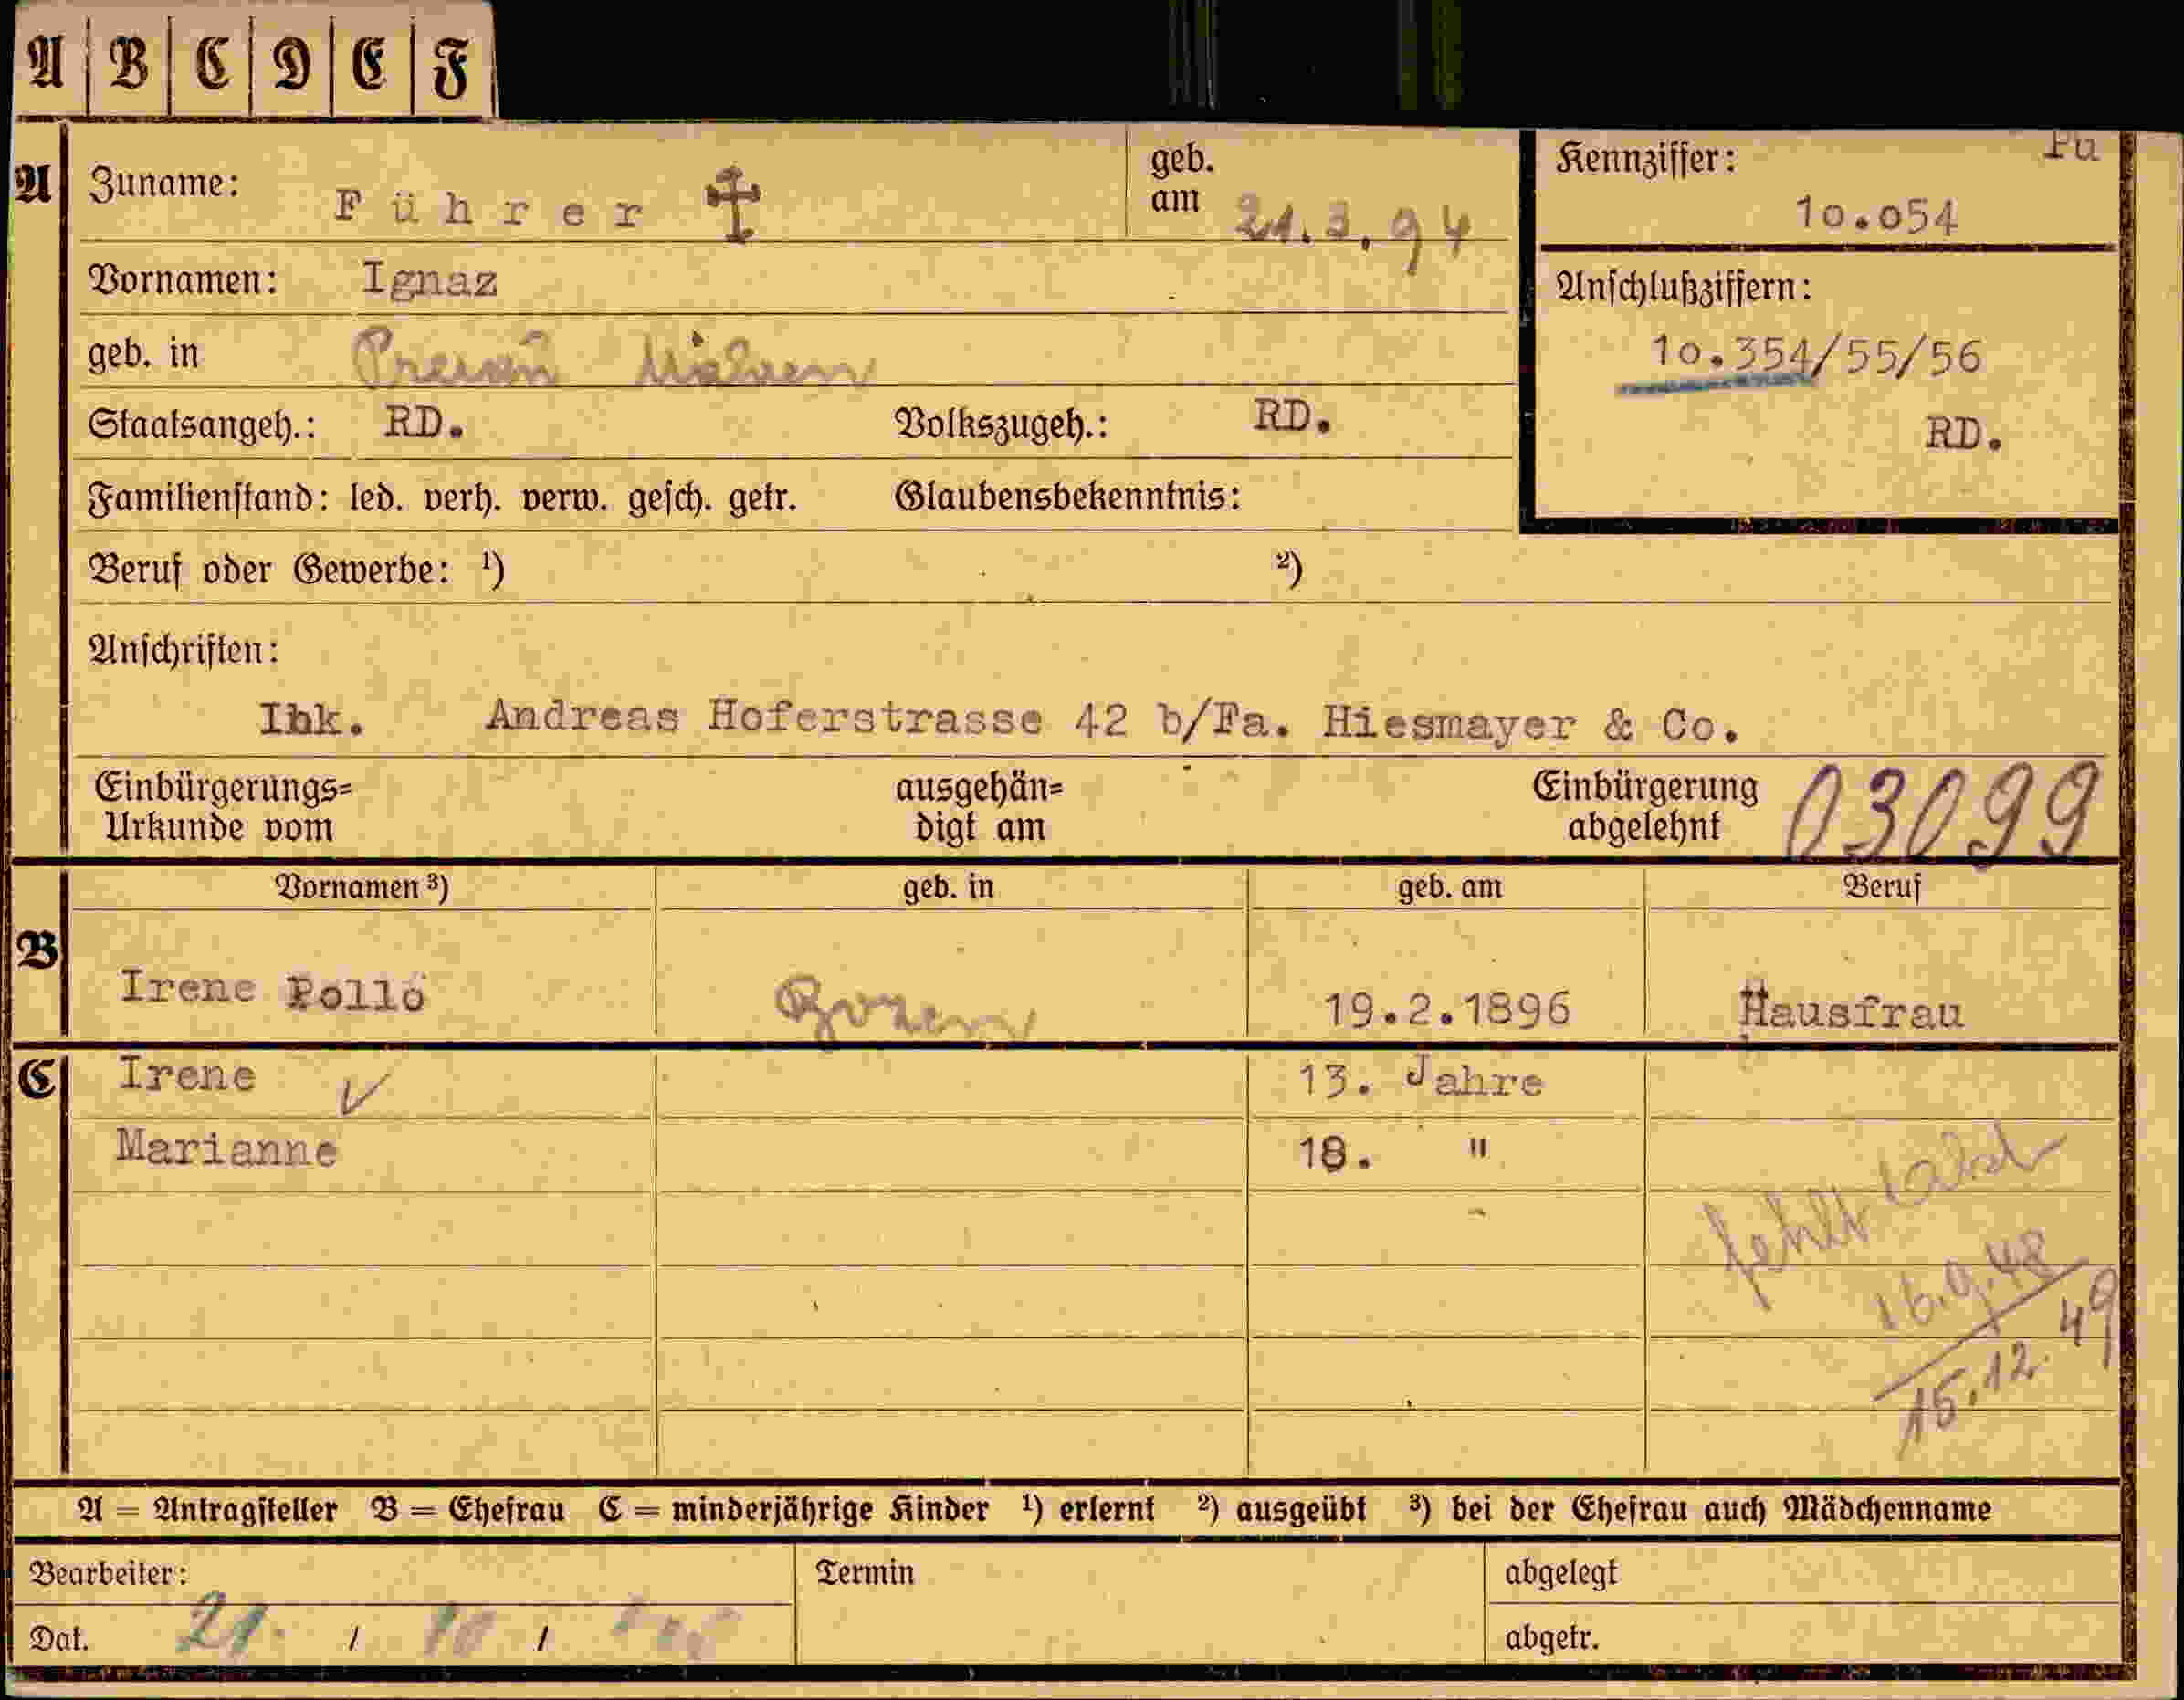 A B C D E F
A Zuname: Führer geb. am 21.3.94
Kennziffer: Fü
10.054
Vornamen: Ignaz
Anschlußziffern:
10.354/55/56
RD.
geb. in
Staatsangeh.: RD. Volkszugeh.: RD.
Familienstand: led. verh. verw. gesch. getr. Glaubensbekenntnis:
Beruf oder Gewerbe: ¹) ²)
Anschriften:
Ibk. Andreas Hoferstrasse 42 b/Fa. Hiesmayer & Co.
Einbürgerungs=
Urkunde vom
ausgehän=
digt am
Einbürgerung
abgelehnt
03099
Vornamen ³) geb. in geb. am Beruf
B Irene Polló Bozen 19.2.1896 Hausfrau
C Irene 13. Jahre
Marianne 18. "
fehlt
16.9.48
15.12.49
A = Antragsteller B = Ehefrau C = minderjährige Kinder ¹) erlernt ²) ausgeübt ³) bei der Ehefrau auch Mädchenname
Bearbeiter: Termin abgelegt
Dat. 21. / 10 / abgetr.